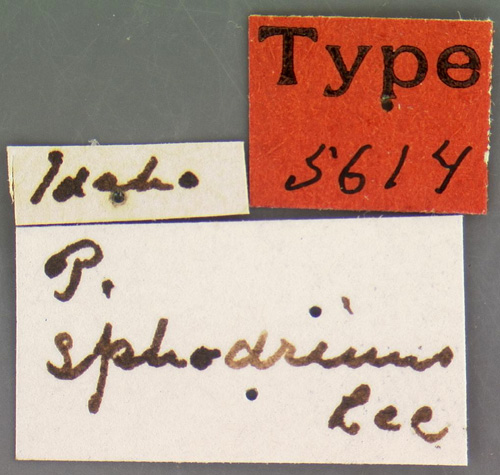 Type
5614
Idaho
P.
sphodrinus
Lec